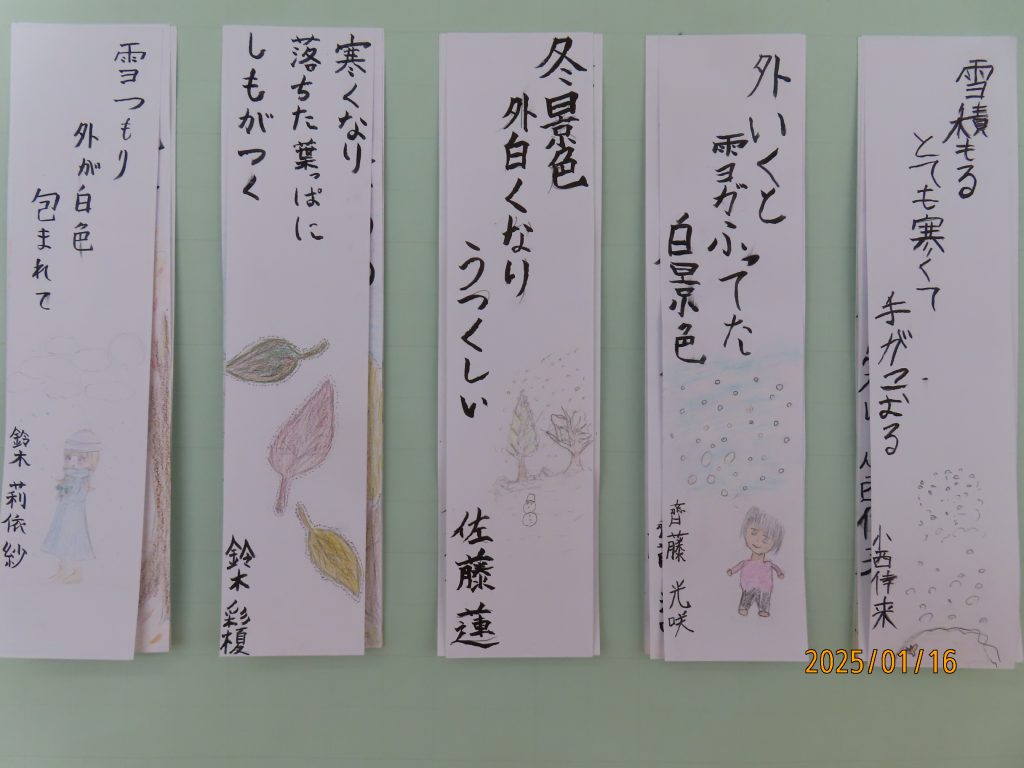 雪積もる
とても寒くて
手がこおる
小西倖来
外いくと
雪ガふってた
白景色
齊藤光咲
冬景色
外白くなり
うつくしい
佐藤蓮
寒くなり
落ちた葉っぱに
しもがつく
鈴木彩榎
雪つもり
外が白色
包まれて
鈴木莉依紗
2025/01/16